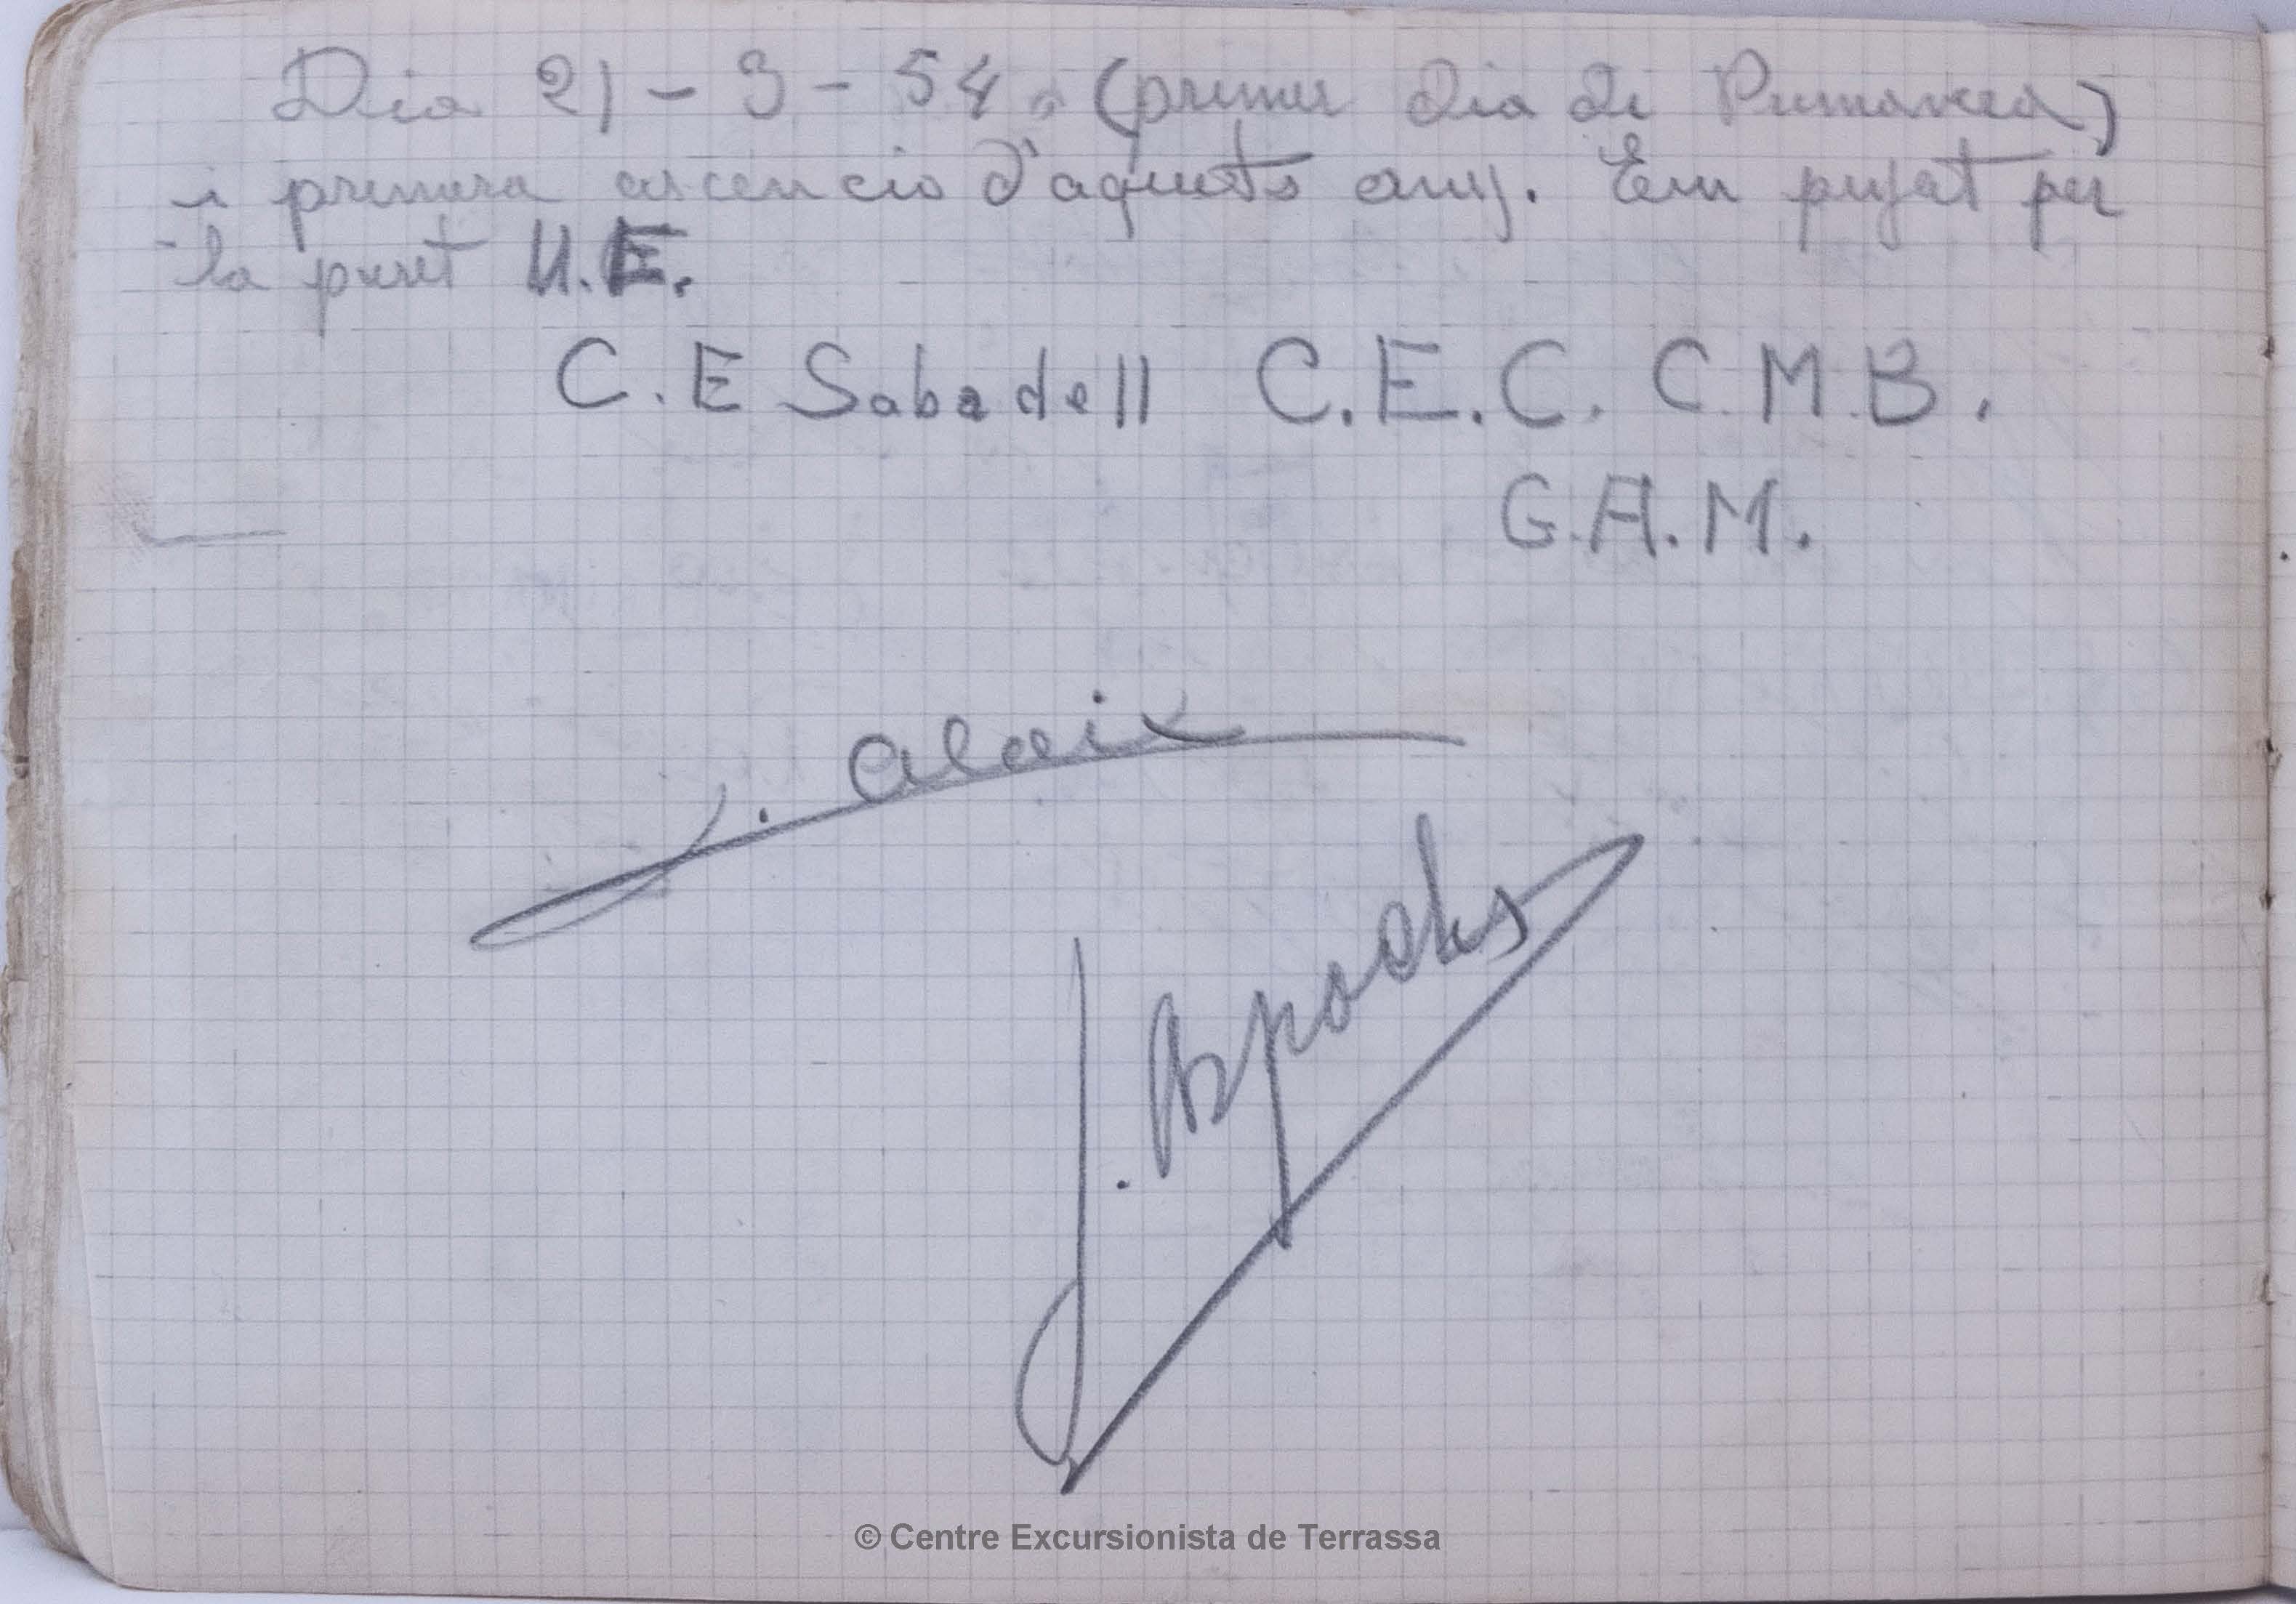 Dia 21-3-54. (primer dia de Primavera)
i primera ascencio d'aquets any. Em pujat per
la paret N.E.
C.E Sabadell C.E.C. C.M.B.
G.A.M.
J. Alaix
J.
© Centre Excursionista de Terrassa